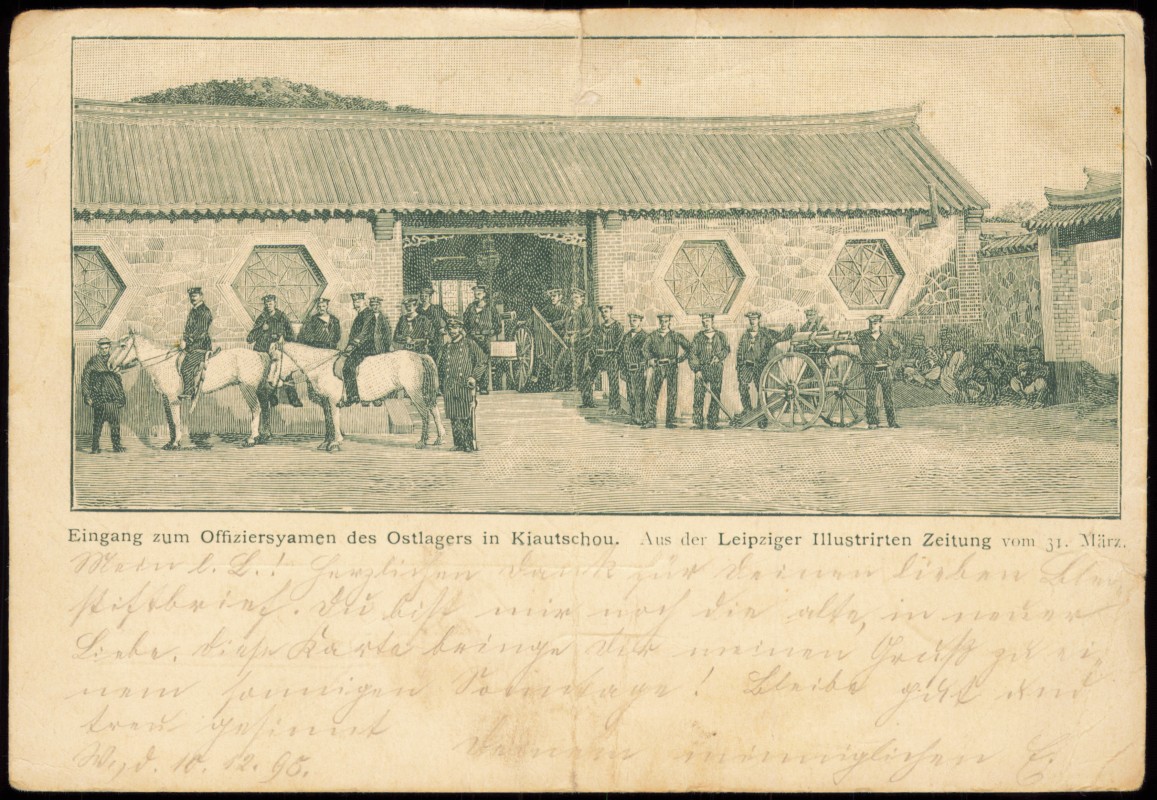 Eingang zum Offiziersyamen des Ostlagers in Kiautschou. Aus der Leipziger Illustrirten Zeitung vom 31. März.
Mein l. L.! Herzlichen Dank für Deinen lieben Blei-
stiftbrief. Du bist mir noch die alte, in neuer
Liebe. Diese Karte bringe Dir meinen Gruß zu ei-
nem sonnigen Sonntage! Bleibe gut und
treu gesinnt
Deinem E.
10. 12. 98.